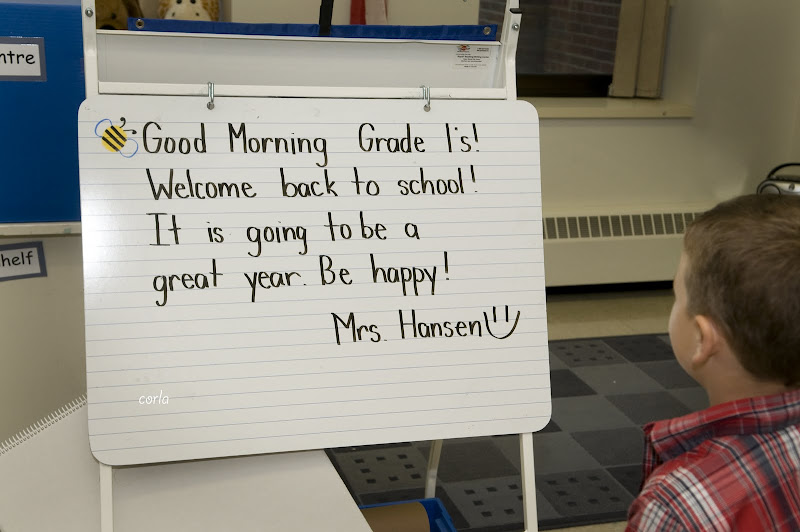 ntre
helf
Good Morning Grade 1's!
Welcome back to school!
It is going to be a
great year. Be happy!
Mrs. Hansen
corla